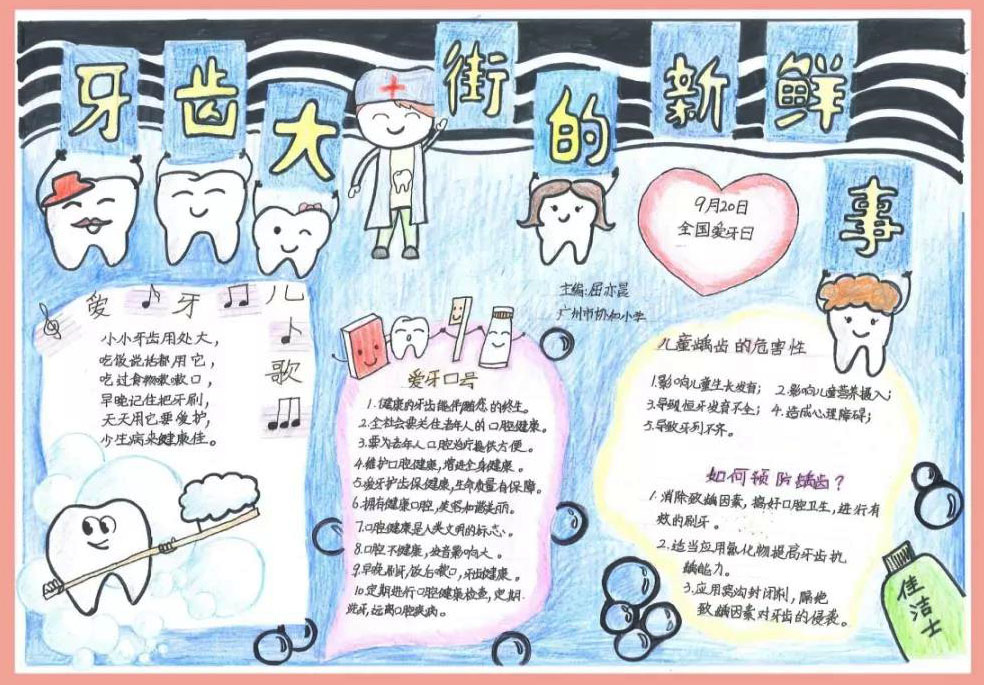 牙齿大街的新鲜事
9月20日
全国爱牙日
主编:屈亦晨
广州市协和小学
爱牙儿歌
小小牙齿用处大，
吃饭说话都用它，
吃过食物漱漱口，
早晚记住把牙刷，
天天用它要爱护，
少生病来健康佳。
爱牙口号
1.健康的牙齿能伴随您的终生。
2.全社会要关注老年人的口腔健康。
3.要为老年人口腔治疗提供方便。
4.维护口腔健康,增进全身健康。
5.爱牙护齿保健康,生命质量有保障。
6.拥有健康口腔,笑容和谐美丽。
7.口腔健康是人类文明的标志。
8.口腔不健康,发音影响大。
9.早晚刷牙,饭后漱口,牙齿健康。
10.定期进行口腔健康检查,定期
洗牙,远离口腔疾病。
儿童龋齿的危害性
1.影响儿童生长发育； 2.影响儿童营养摄入；
3.导致恒牙发育不全； 4.造成心理障碍；
5.导致牙列不齐。
如何预防龋齿？
1.消除致龋因素，搞好口腔卫生，进行有
效的刷牙。
2.适当应用氟化物提高牙齿抗
龋能力。
3.应用窝沟封闭剂，隔绝
致龋因素对牙齿的侵袭。
佳洁士